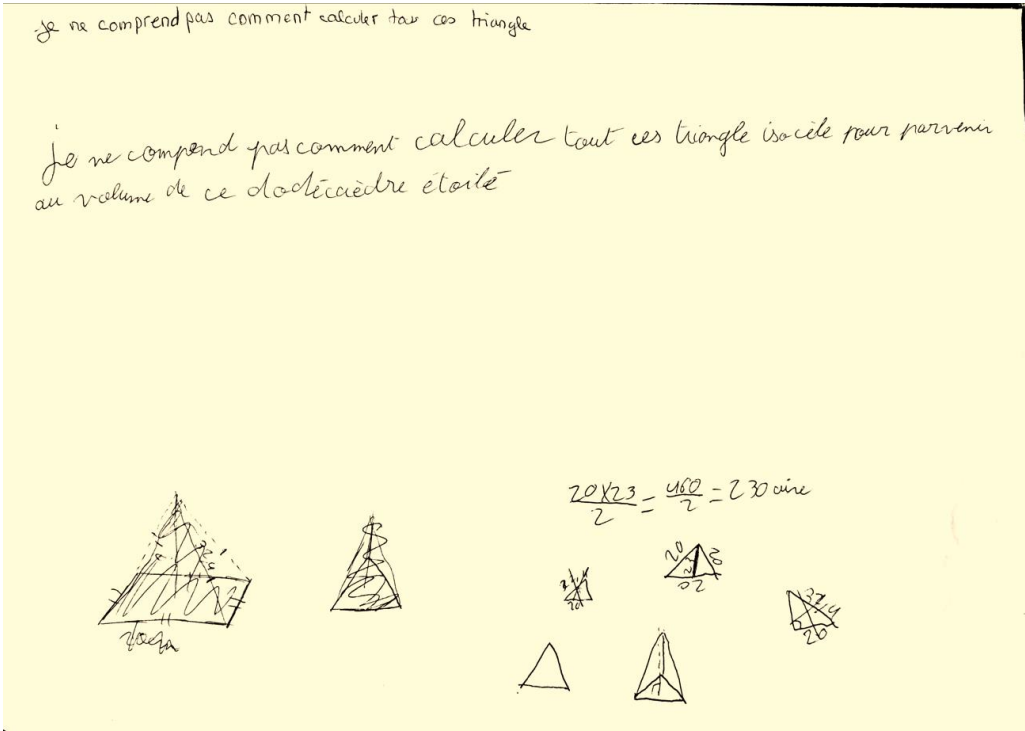 je ne comprend pas comment calculer ces triangle
je ne compend pas comment calculer tout ces triangle isocèle pour parvenir
au volume de ce dodécaèdre étoilé
20X23/2 = 460/2 = 230 aire
20 20
20
20